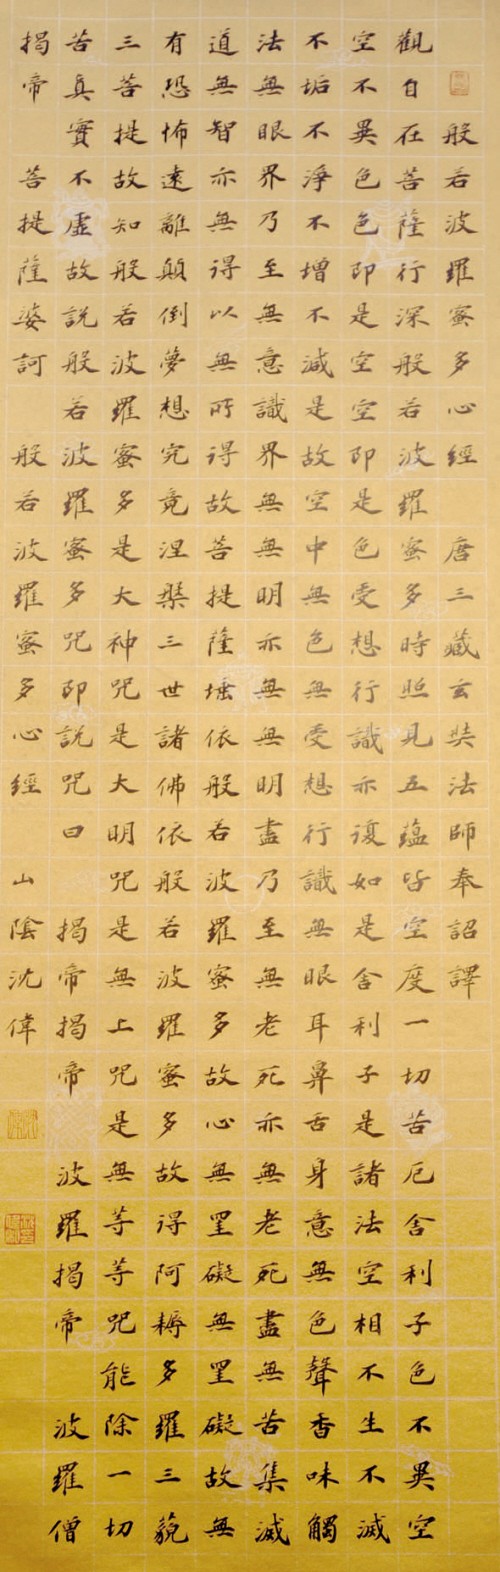 般若波羅蜜多心經 唐三藏玄奘法師奉詔譯
觀自在菩薩行深般若波羅蜜多時照見五蘊皆空度一切苦厄舍利子色不異空
空不異色色即是空空即是色受想行識亦復如是舍利子是諸法空相不生不滅
不垢不淨不增不減是故空中無色無受想行識無眼耳鼻舌身意無色聲香味觸
法無眼界乃至無意識界無無明亦無無明盡乃至無老死亦無老死盡無苦集滅
道無智亦無得以無所得故菩提薩埵依般若波羅蜜多故心無罣礙無罣礙故無
有恐怖遠離顛倒夢想究竟涅槃三世諸佛依般若波羅蜜多故得阿耨多羅三藐
三菩提故知般若波羅蜜多是大神咒是大明咒是無上咒是無等等咒能除一切
苦真實不虛故說般若波羅蜜多咒即說咒曰 揭帝揭帝 波羅揭帝 波羅僧
揭帝 菩提薩婆訶 般若波羅蜜多心經 山陰沈偉